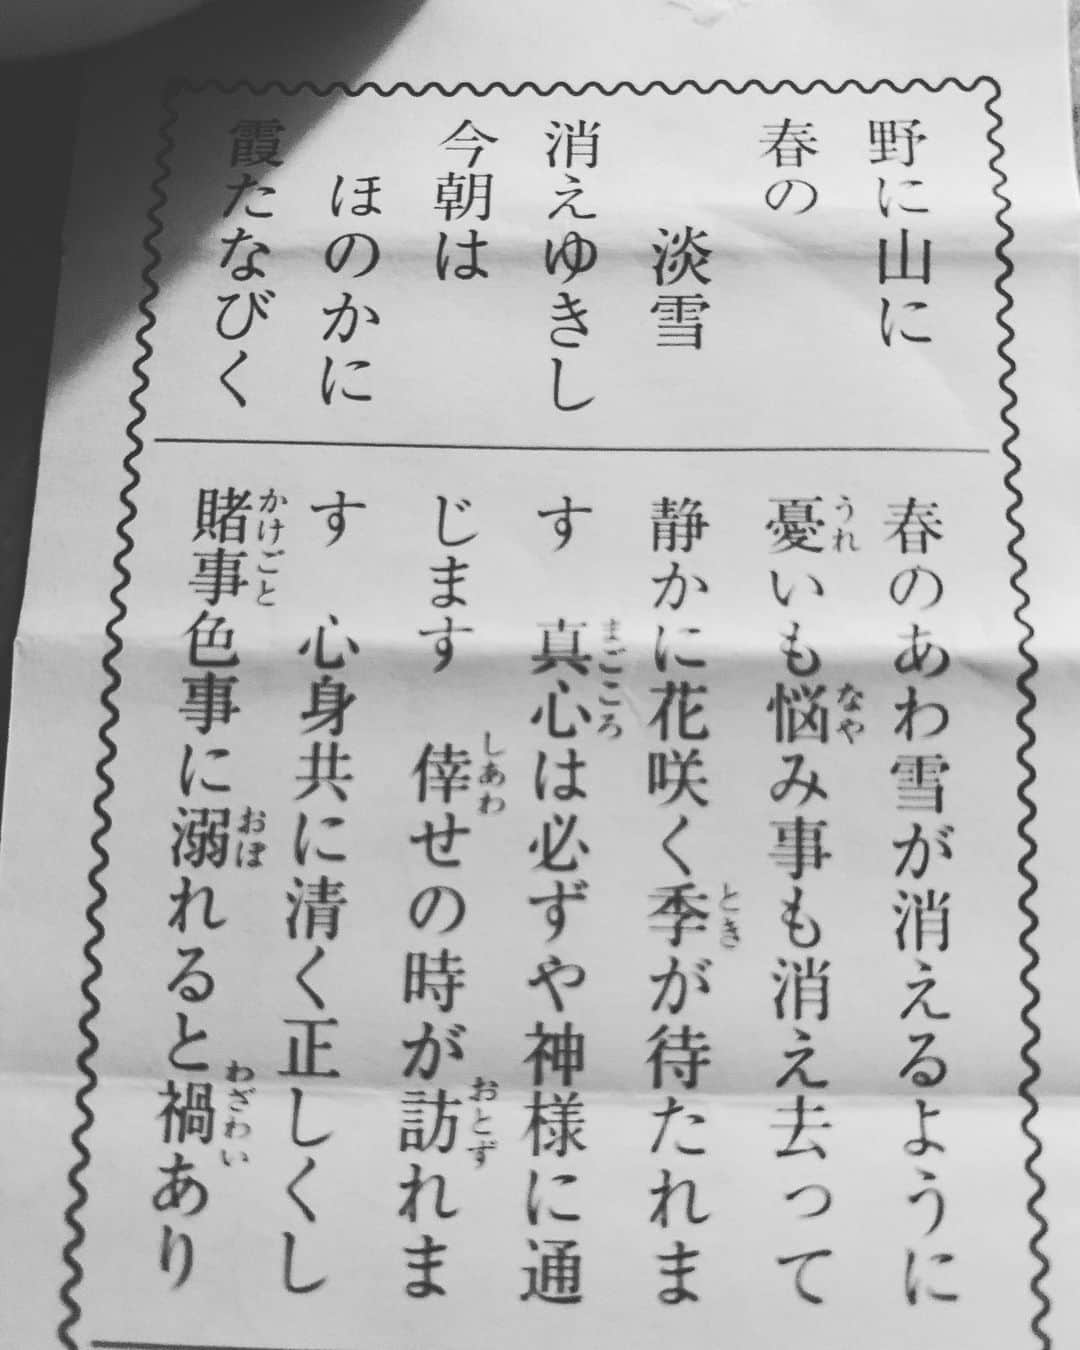 野に山に
春の
淡雪
消えゆきし
今朝は
ほのかに
霞たなびく
春のあわ雪が消えるように
憂いも悩み事も消え去って
静かに花咲く季が待たれま
す　真心は必ずや神様に通
じます　倖せの時が訪れま
す　心身共に清く正しくし
賭事色事に溺れると禍あり
うれ
なや
とき
まごころ
しあわ
おとず
かけごと
おぼ
わざわい